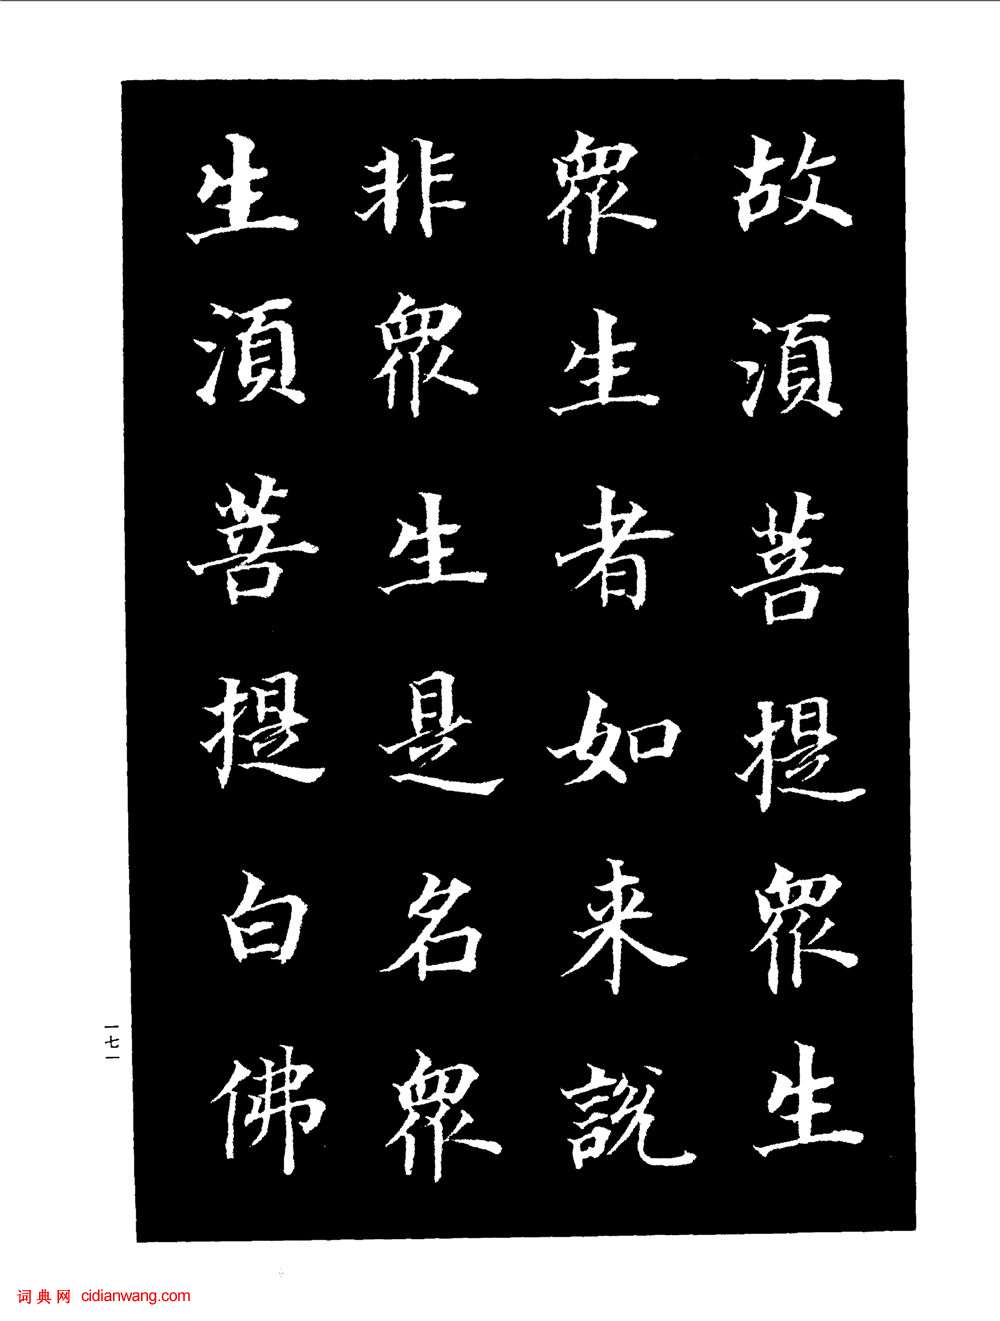 故須菩提衆生
衆生者如来説
非衆生是名衆
生須菩提白佛
一七一
词典网 cidianwang.com